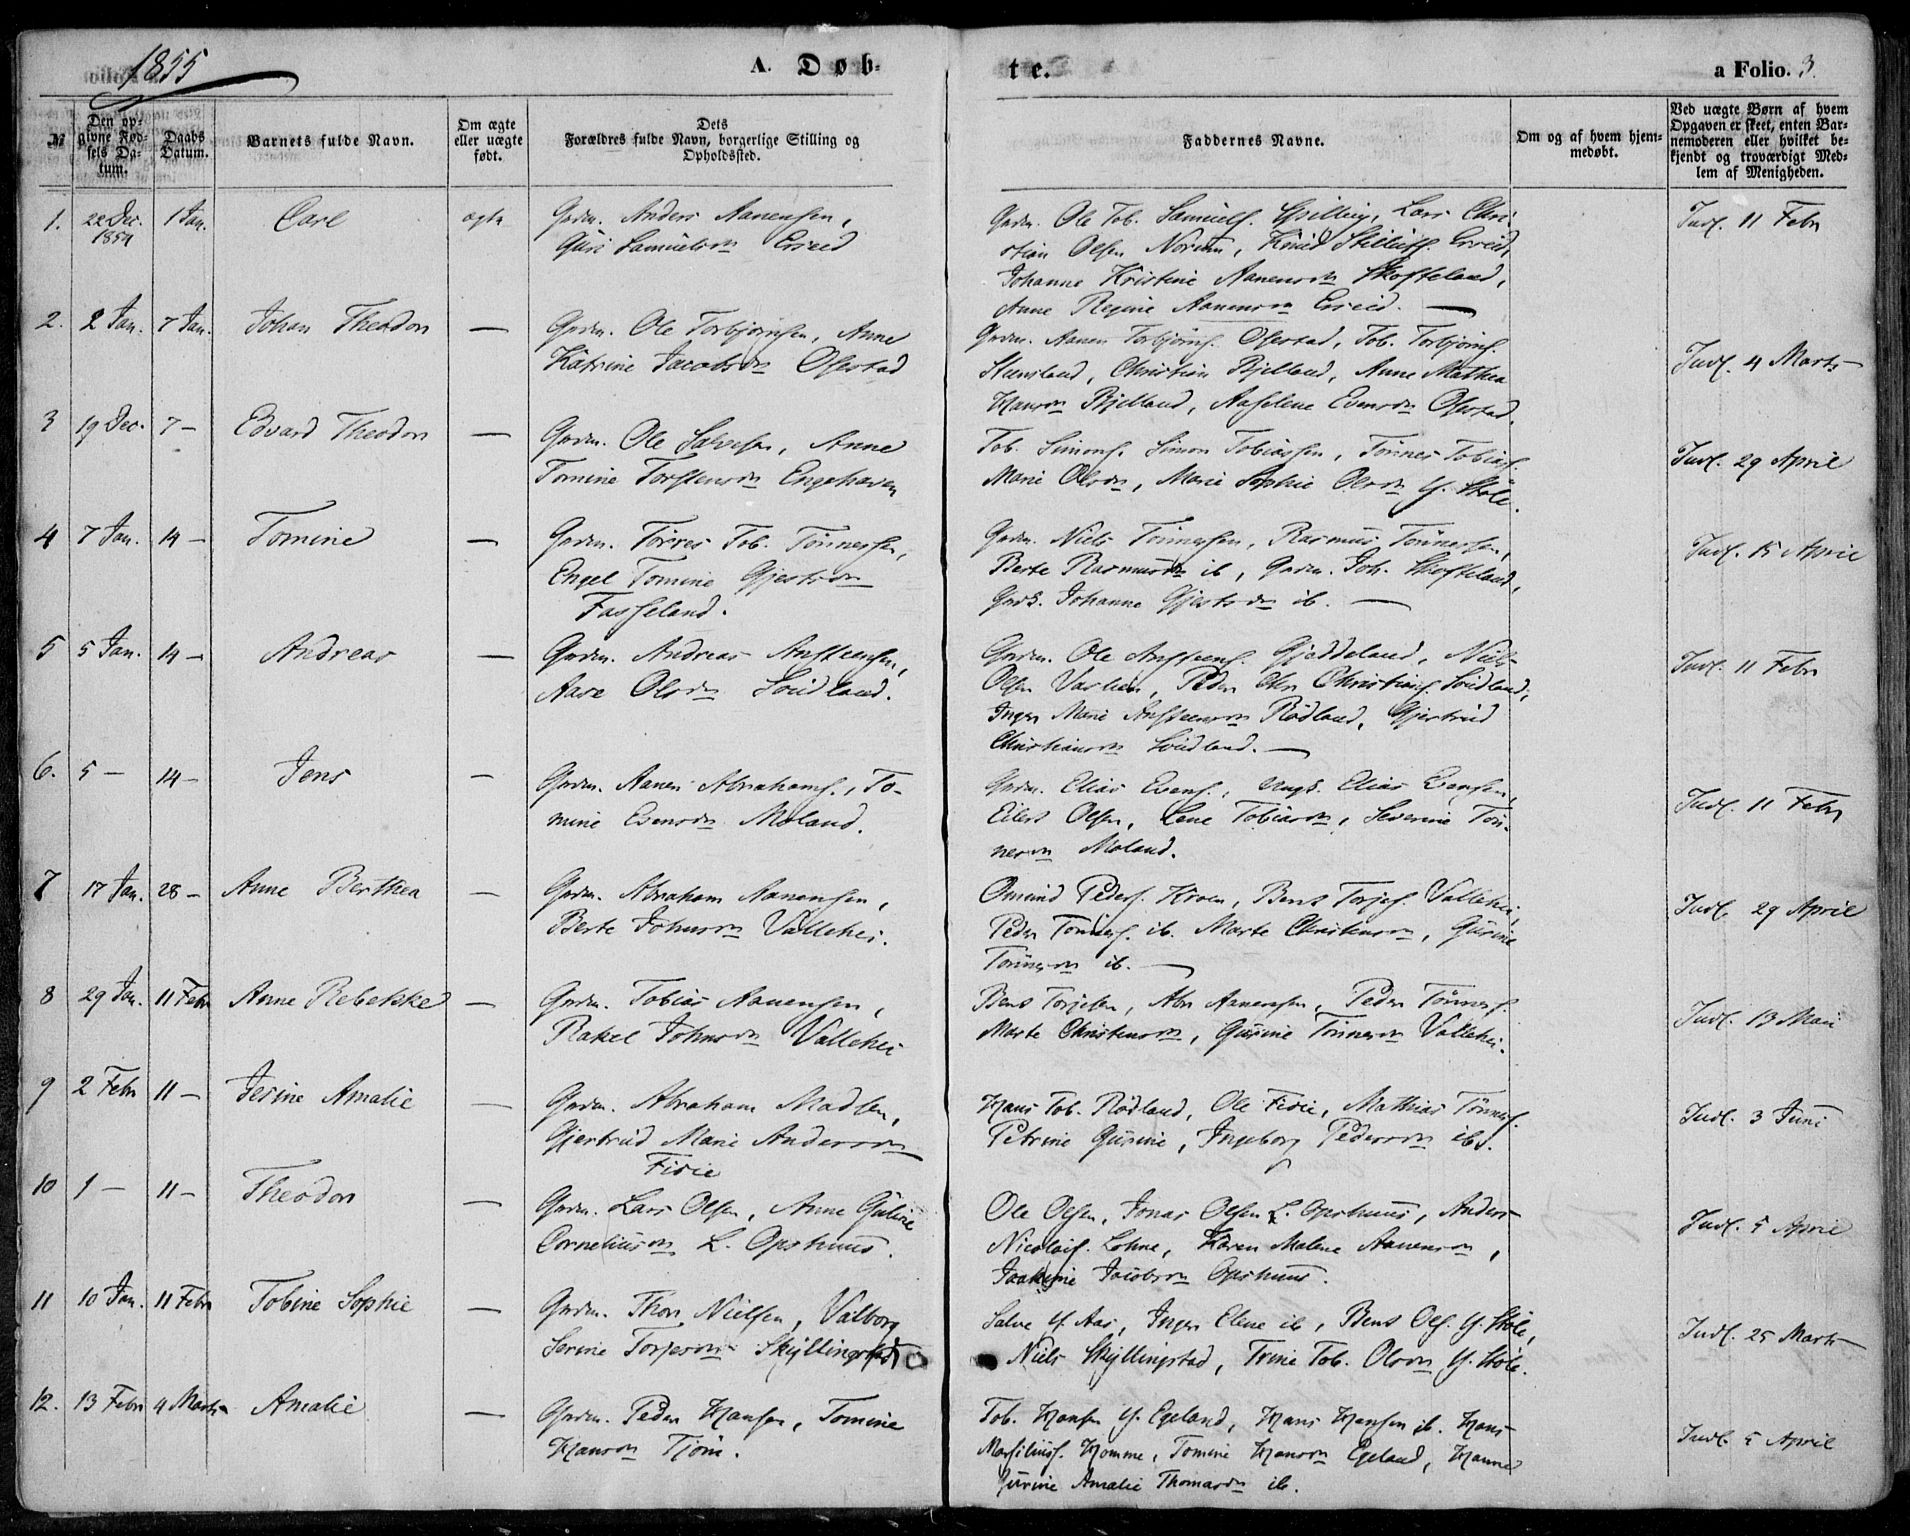 1855
A. Døb-
te.
a Folio. 3.
№
Den op-
givne Fød-
sels Da-
tum.
Daabs
Datum.
Barnets fulde Navn.
Om ægte
eller uægte
født.
Dets
Forældres fulde Navn, borgerlige Stilling og
Opholdssted.
Faddernes Navne.
Om og af hvem hjem-
medøbt.
Ved uægte Børn af hvem
Opgaven er skeet, enten Bar-
nemoderen eller hvilket be-
kjendt og troværdigt Med-
lem af Menigheden.
1. 22 Dec. 1 Jan. Carl ægte Grdm. Anders Aanensen,
1854 Guri Samuelsdn Esreid
Grdm. Ole Tob. Samuels. Lars Chri-
stian Olsen Norum, Knud
Johanne Kristine Aanensdn Skofteland,
Anne Regine Aanensdn Esreid. —
Indl. 11 Febr
2. 2 Jan. 7 Jan. Johan Theodor — Grdm. Ole Torbjørnsen, Anne
Katrine Jacobsdn Ofestad
Grdm. Aanen Torbjørns. Ofestad, Tob. Torbjørns.
Steensland, Christian Bjelland, Anne Mathea
Hansdn Bjelland, Aaselene Evensdn Ofestad.
Indl. 4 Marts
3 19 Dec. 7 — Edvard Theodor — Grdm. Ole Salvesen, Anne
Tomine Torstensdn Engehaven
Tob. Simons. Simon Tobiassen, Tønnes Tobias.
Marie Olsdn, Marie Sophie Olsdn Y. Støle.
Indl. 29 April
4 7 Jan. 14 — Tomine — Grdm. Torres Tob. Tønnessen,
Engel Tomine Gjertsdn
Fasseland.
Grdm. Niels Tønnessen, Rasmus Tønnessen,
Berte Rasmusdn ib, Grdm. Joh. Skofteland,
Johanne Gjertsdn ib. —
Indl. 15 April
5 5 Jan. 14 — Andreas — Grdm. Andreas Anstensen,
Aase Olsdn Søidland.
Grdm. Ole Anstens. Gjeddeland, Niels
Olsen Peder Chr Christians. Søidland,
Inger Marie Anstensdn Rødland, Gjertrud
Christiansdn Søidland. —
Indl. 11 Febr
6. 5 — 14 — Jens — Grdm. Aanen Abrahams., To-
mine Evensdn Moland.
Grdm. Elias Evens., Ungk. Elias Evensen,
Eilert Olsen, Lene Tobiasdn, Severine Tøn-
nesdn Moland.
Indl. 11 Febr
7 17 Jan. 28 — Anne Berthea — Grdm. Abraham Aanensen,
Berte Johnsdn Vallehei.
Omund Peders. Kroen, Bent Torjes. Vallehei,
Peder Tønnes. ib. Marte Christensdn, Gurine
Tønnesdn ib. —
Indl. 29 April
8 29 Jan. 11 Febr Anne Rebekke — Grdm. Tobias Aanensen,
Rakel Johnsdn Vallehei
Bent Torjesen, Abr Aanensen, Peder Tønnes.
Marte Christensdn, Gurine Tønnesdn Vallehei.
Indl. 13 Mai
9 2 Febr 11 — Jesine Amalie — Grdm. Abraham Madsen,
Gjertrud Marie Andersdn
Fidie
Hans Tob. Rødland, Ole Fidie, Mathias Tønnes.
Petrine Gurine, Ingeborg Pedersdn ibd.
Indl. 3 Juni
10 1 — 11 — Theodor — Grdm. Lars Olsen, Anne Guline
Corneliusdn L. Opshuus.
Ole Olsen, Jonas Olsen L. Opshuus, Anders
Nicolais. Lohne, Karen Malene Aanensdn,
Joakime Jacobsdn Opshuus.
Indl. 5 April
11 10 Jan. 11 Febr Tobine Sophie — Grdm. Thor Nielsen, Valborg
Serine Torjesdn Skyllingstad
Salve Y. Aas, Inger Elene ib, Bent Ols. Y. Støle,
Niels Skyllingstad, Trine Tob. Olsdn Y. Støle.
Indl. 25 Marts
12. 13 Febr 4 Marts Amalie — Grdm. Peder Hansen, Tomine
Hansdn Tjøm.
Tob. Hansen Y. Egeland, Hans Hansen ib. Hans
Marsilius. Homme, Tomine Hansdn Egeland, Hanne
Gurine Amalie Thomasdn ib.
Indl. 5 April